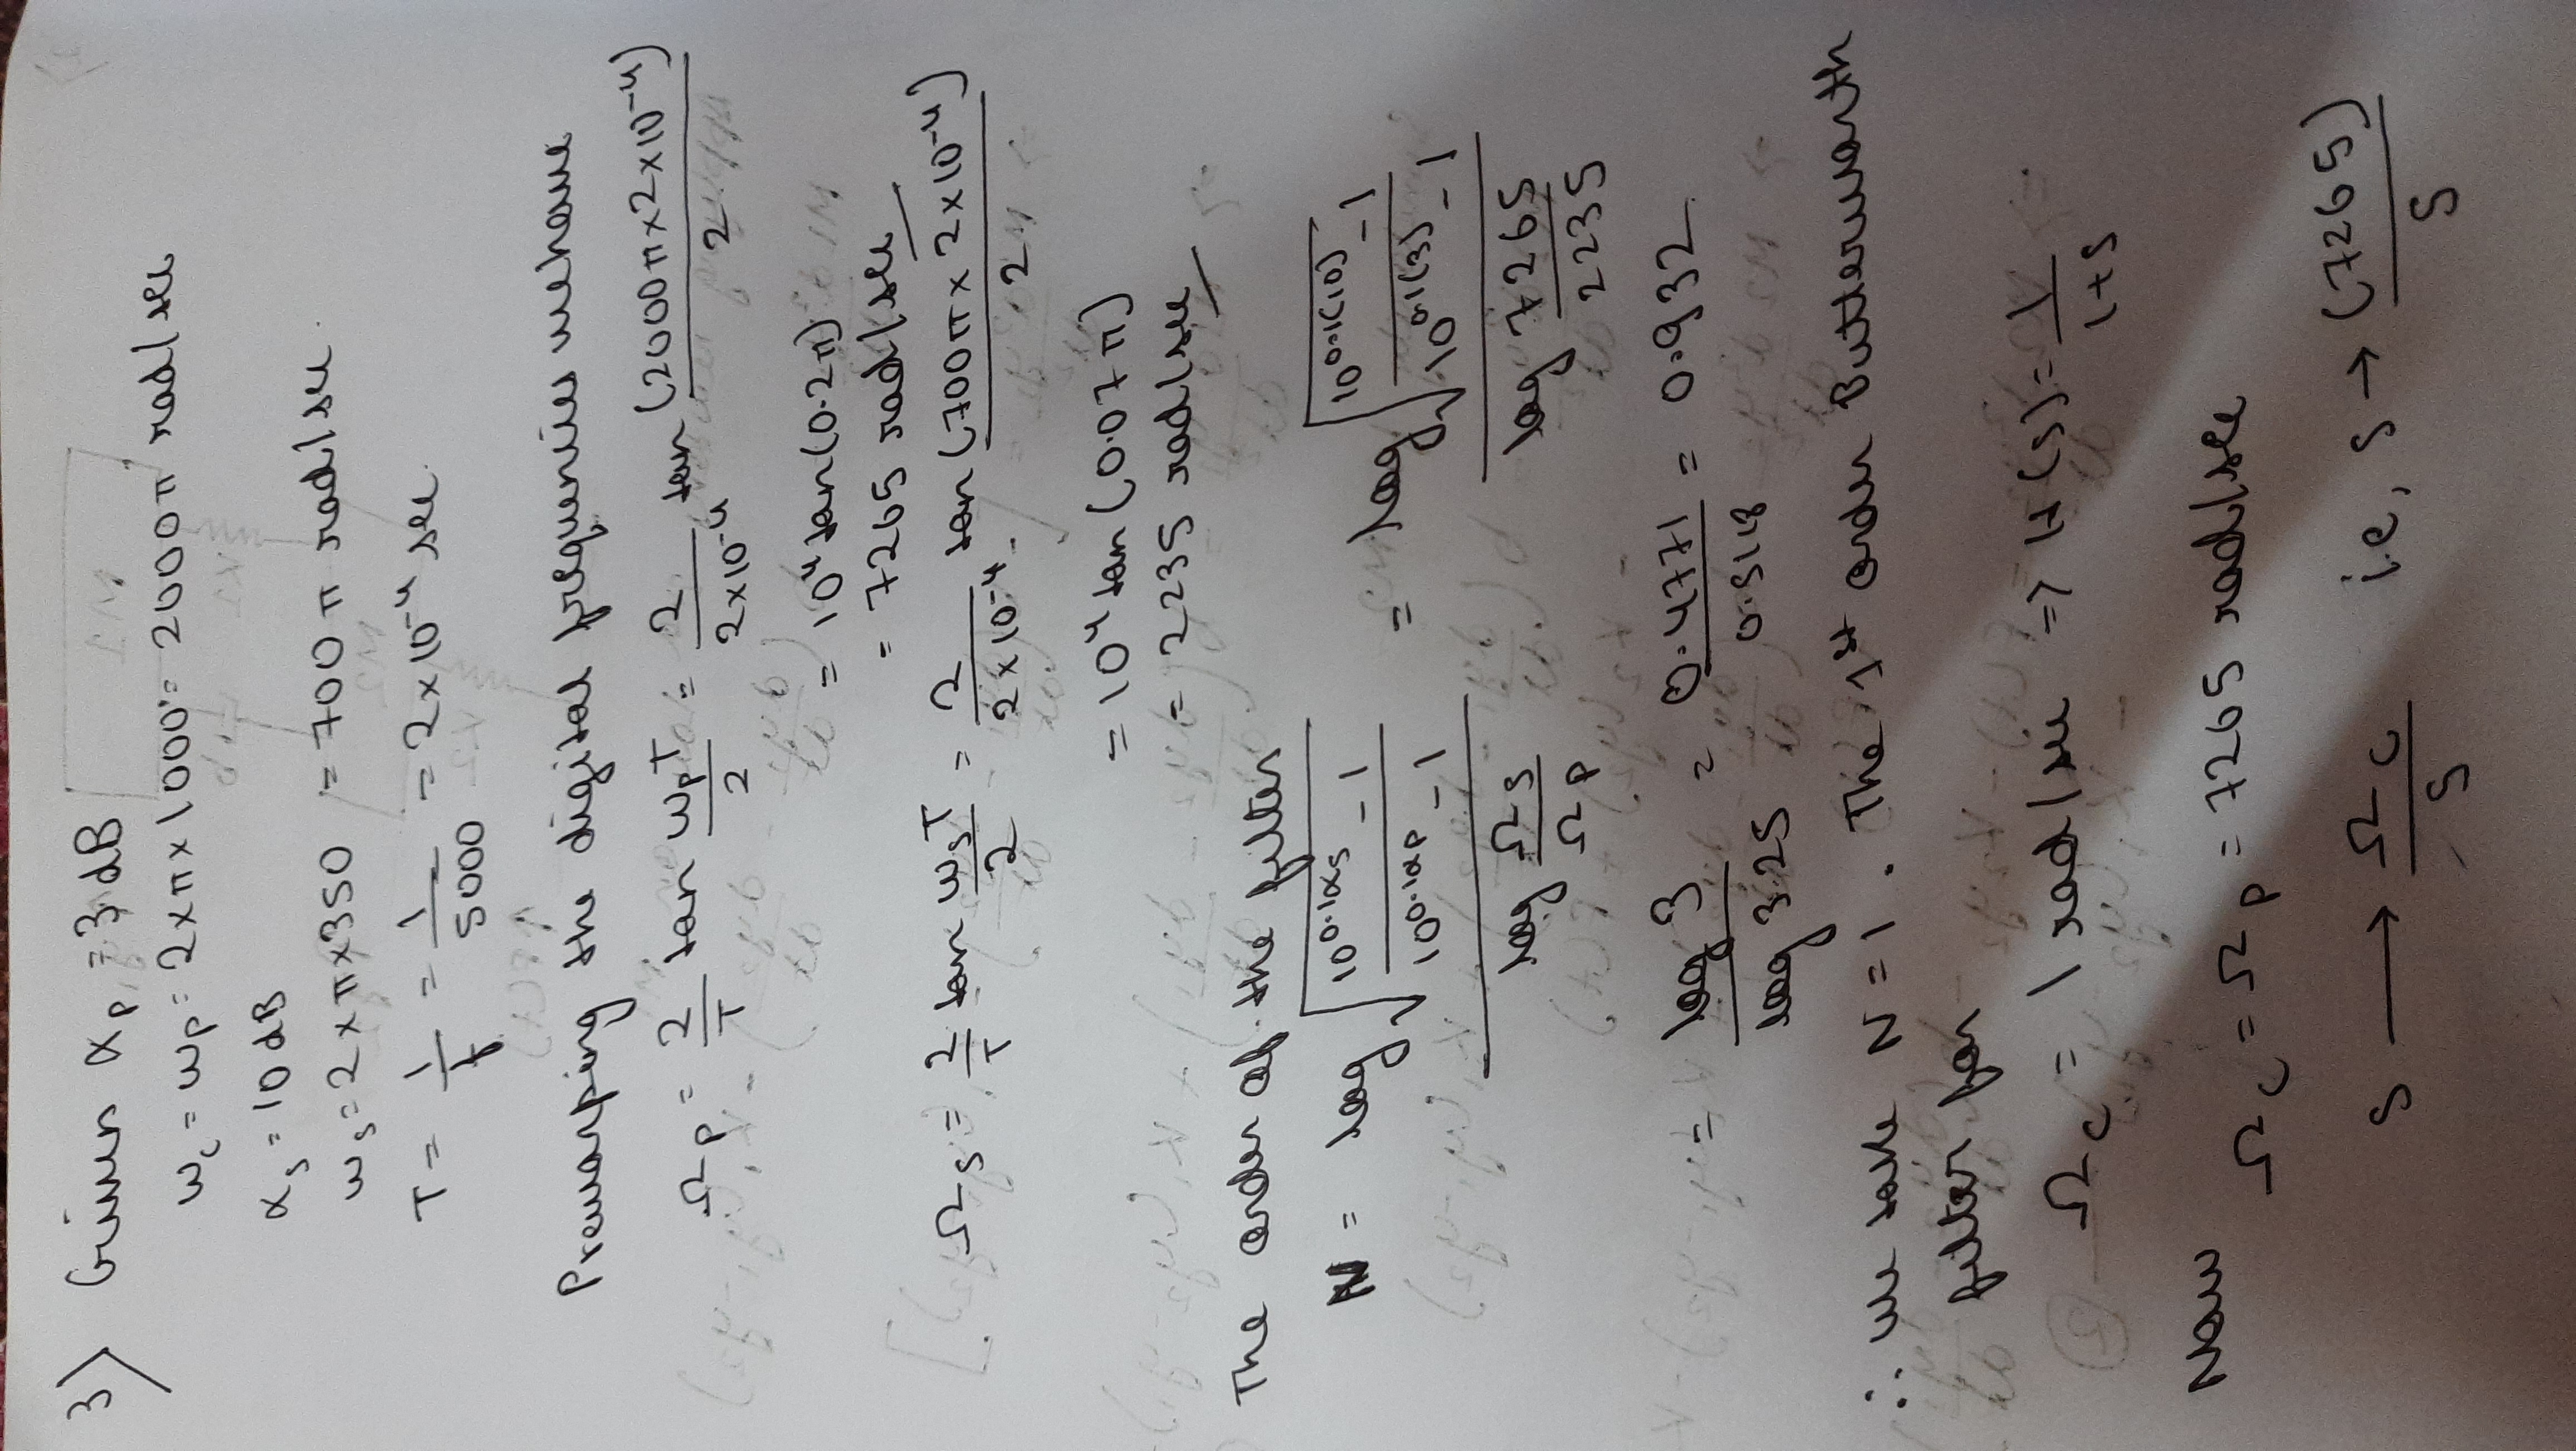 3) Given αp = 3 dB
ωc = ωp = 2×π×1000 = 2000π rad/sec
αs = 10 dB
ωs = 2×π×350 = 700π rad/sec.
T = 1/f = 1/5000 = 2×10⁻⁴ sec.
Prewarping the digital frequencies we have
Ωp = 2/T tan ωpT/2 = 2/(2×10⁻⁴) tan (2000π×2×10⁻⁴)/2
= 10⁴ tan(0.2π)
= 7265 rad/sec
Ωs = 2/T tan ωsT/2 = 2/(2×10⁻⁴) tan (700π×2×10⁻⁴)/2
= 10⁴ tan(0.07π)
= 2235 rad/sec
The order of the filter
N = log √((10^0.1αs − 1)/(10^0.1αp − 1)) / log Ωs/Ωp = log √((10^0.1(10) − 1)/(10^0.1(3) − 1)) / log 7265/2235
= log 3 / log 3.25 = 0.4771/0.5118 = 0.932.
∴ We take N = 1. The 1st order Butterworth
filter for
Ωc = 1 rad/sec ⇒ H(s) = 1/(1+s)
Now
Ωc = Ωp = 7265 rad/sec
s → Ωc/s i.e, s → (7265)/s